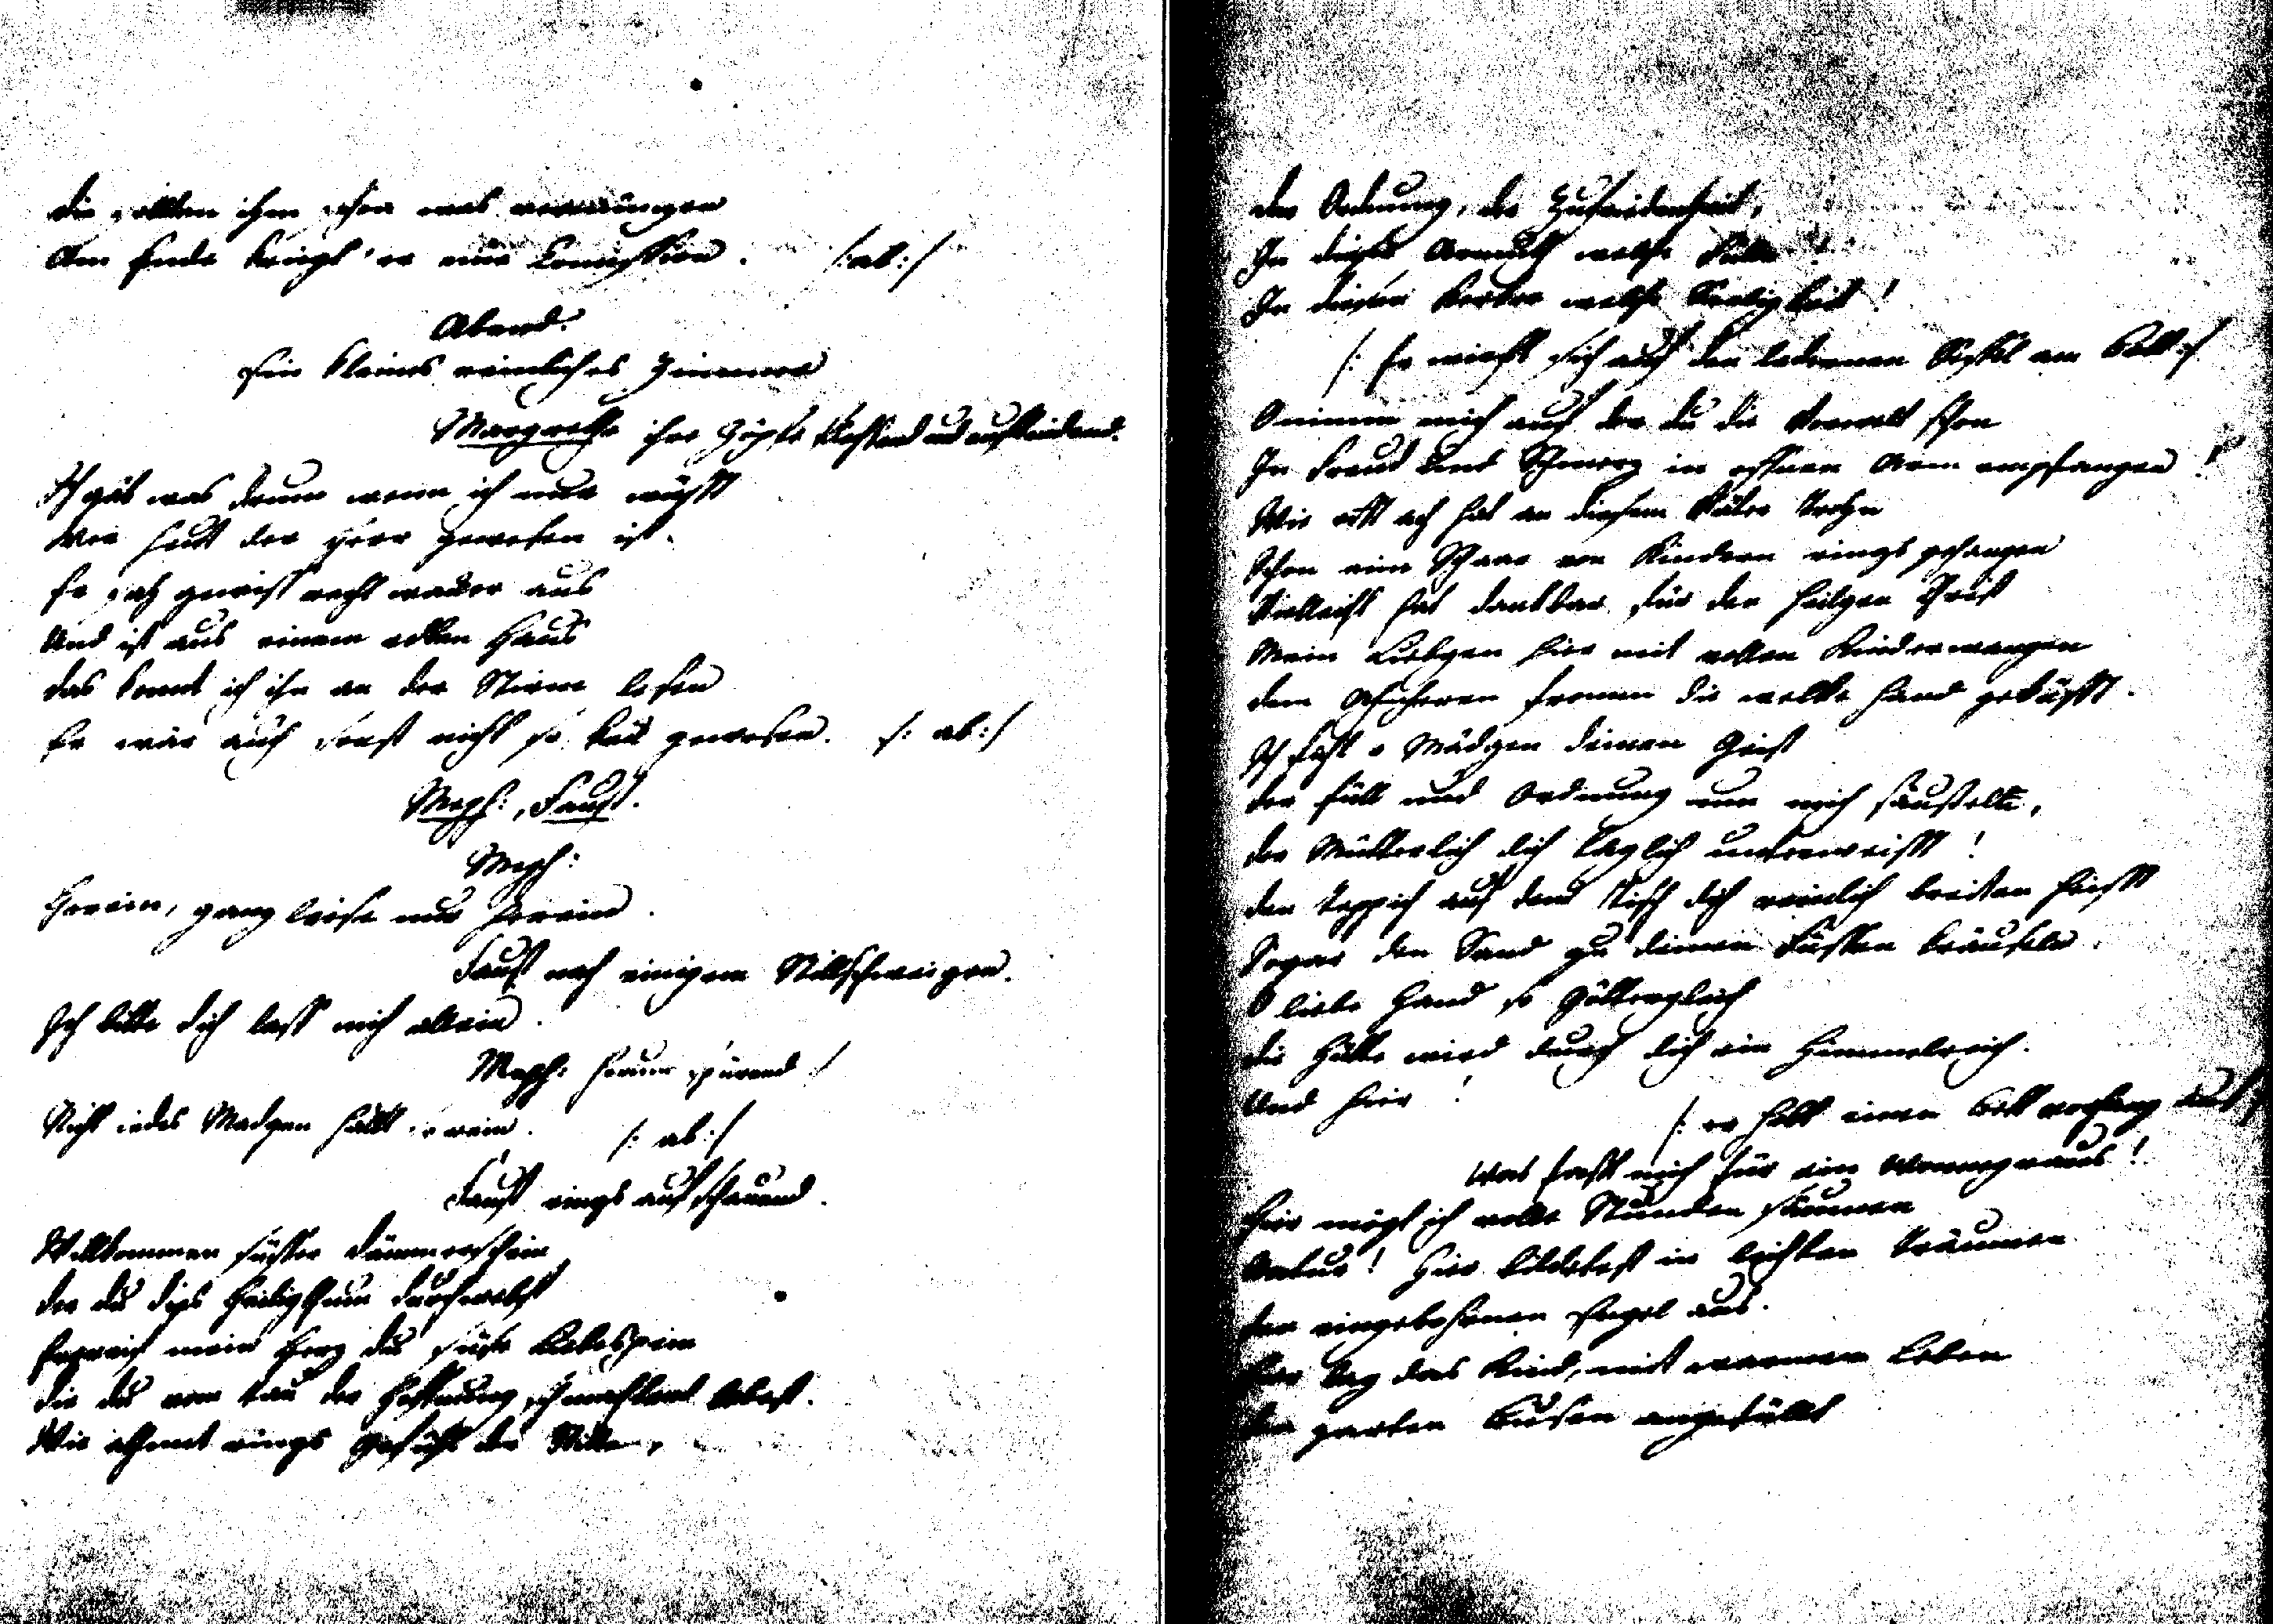 die sollten ihm schon was vermüngen
Am Ende kriegt' er eine Comission. /:ab:/
Abend.
Ein kleines reinliches Zimmer
Margrethe ihre Zöpfe flechtend und aufbindend.
Ich gäb was drum wenn ich nur wüsst
Wer heut der Herr gewesen ist.
Er sah gewiss recht wacker aus
Und ist aus einem edlen Haus
das konnt ich ihm an der Stirne lesen
Er wär auch sonst nicht so keck gewesen. /: ab:/
Meph:, Faust.
Meph:
Herein, ganz leise nur herein.
Faust nach einigem Stillschweigen.
Ich bitte dich lass mich allein.
Meph: herum spürend :/
Nicht iedes Mädgen hält so rein. /: ab:/
Faust rings aufschauend.
Willkommen süsser Dämmerschein
der du diess Heiligthum durchwebst
Ergreif mein Herz du süse Liebespein
die du vom Tau der Hoffnung schmachtend lebst.
Wie athmet rings Gefühl der Stille,
der Ordnung, der Zufriedenheit,
In dieser Armuth welche Fülle!
In diesem Kercker welche Seeligkeit!
/: Er wirft sich auf den ledernen Sessel am Bett:/
O nimm mich auf der du die Vorwelt schon
In Freud und Schmerz in offnen Arm empfangen!
Wie offt ach hat an diesem Väter Trohn
Schon eine Schaar von Kindern rings gehangen
Vielleicht hat danckbar für den heilgen Crist
Mein Liebgen hier mit vollen Kinderwangen
dem Ahnherren fromm die welke Hand geküsst.
Ich fühl o Mädgen deinen Geist
der Füll und Ordnung um mich säuslen,
der Mütterlich dich täglich unterweisst!
den Teppich auf den Tisch dich reinlich breiten heisst
Sogar den Sand zu deinen Füssen kräuseln.
O liebe Hand so Göttergleich
die Hütte wird durch dich ein Himmelreich.
Und hier!
/: er hebt einen Bettvorhang auf :/
Was fasst mich für ein Wonnegraus!
Hier mögt ich volle Stunden säumen
Natur! Hier bildetest in leichten Träumen
den eingebohrnen Engel aus.
Hier lag das Kind, mit warmem Leben
den zarten Busen angefüllt